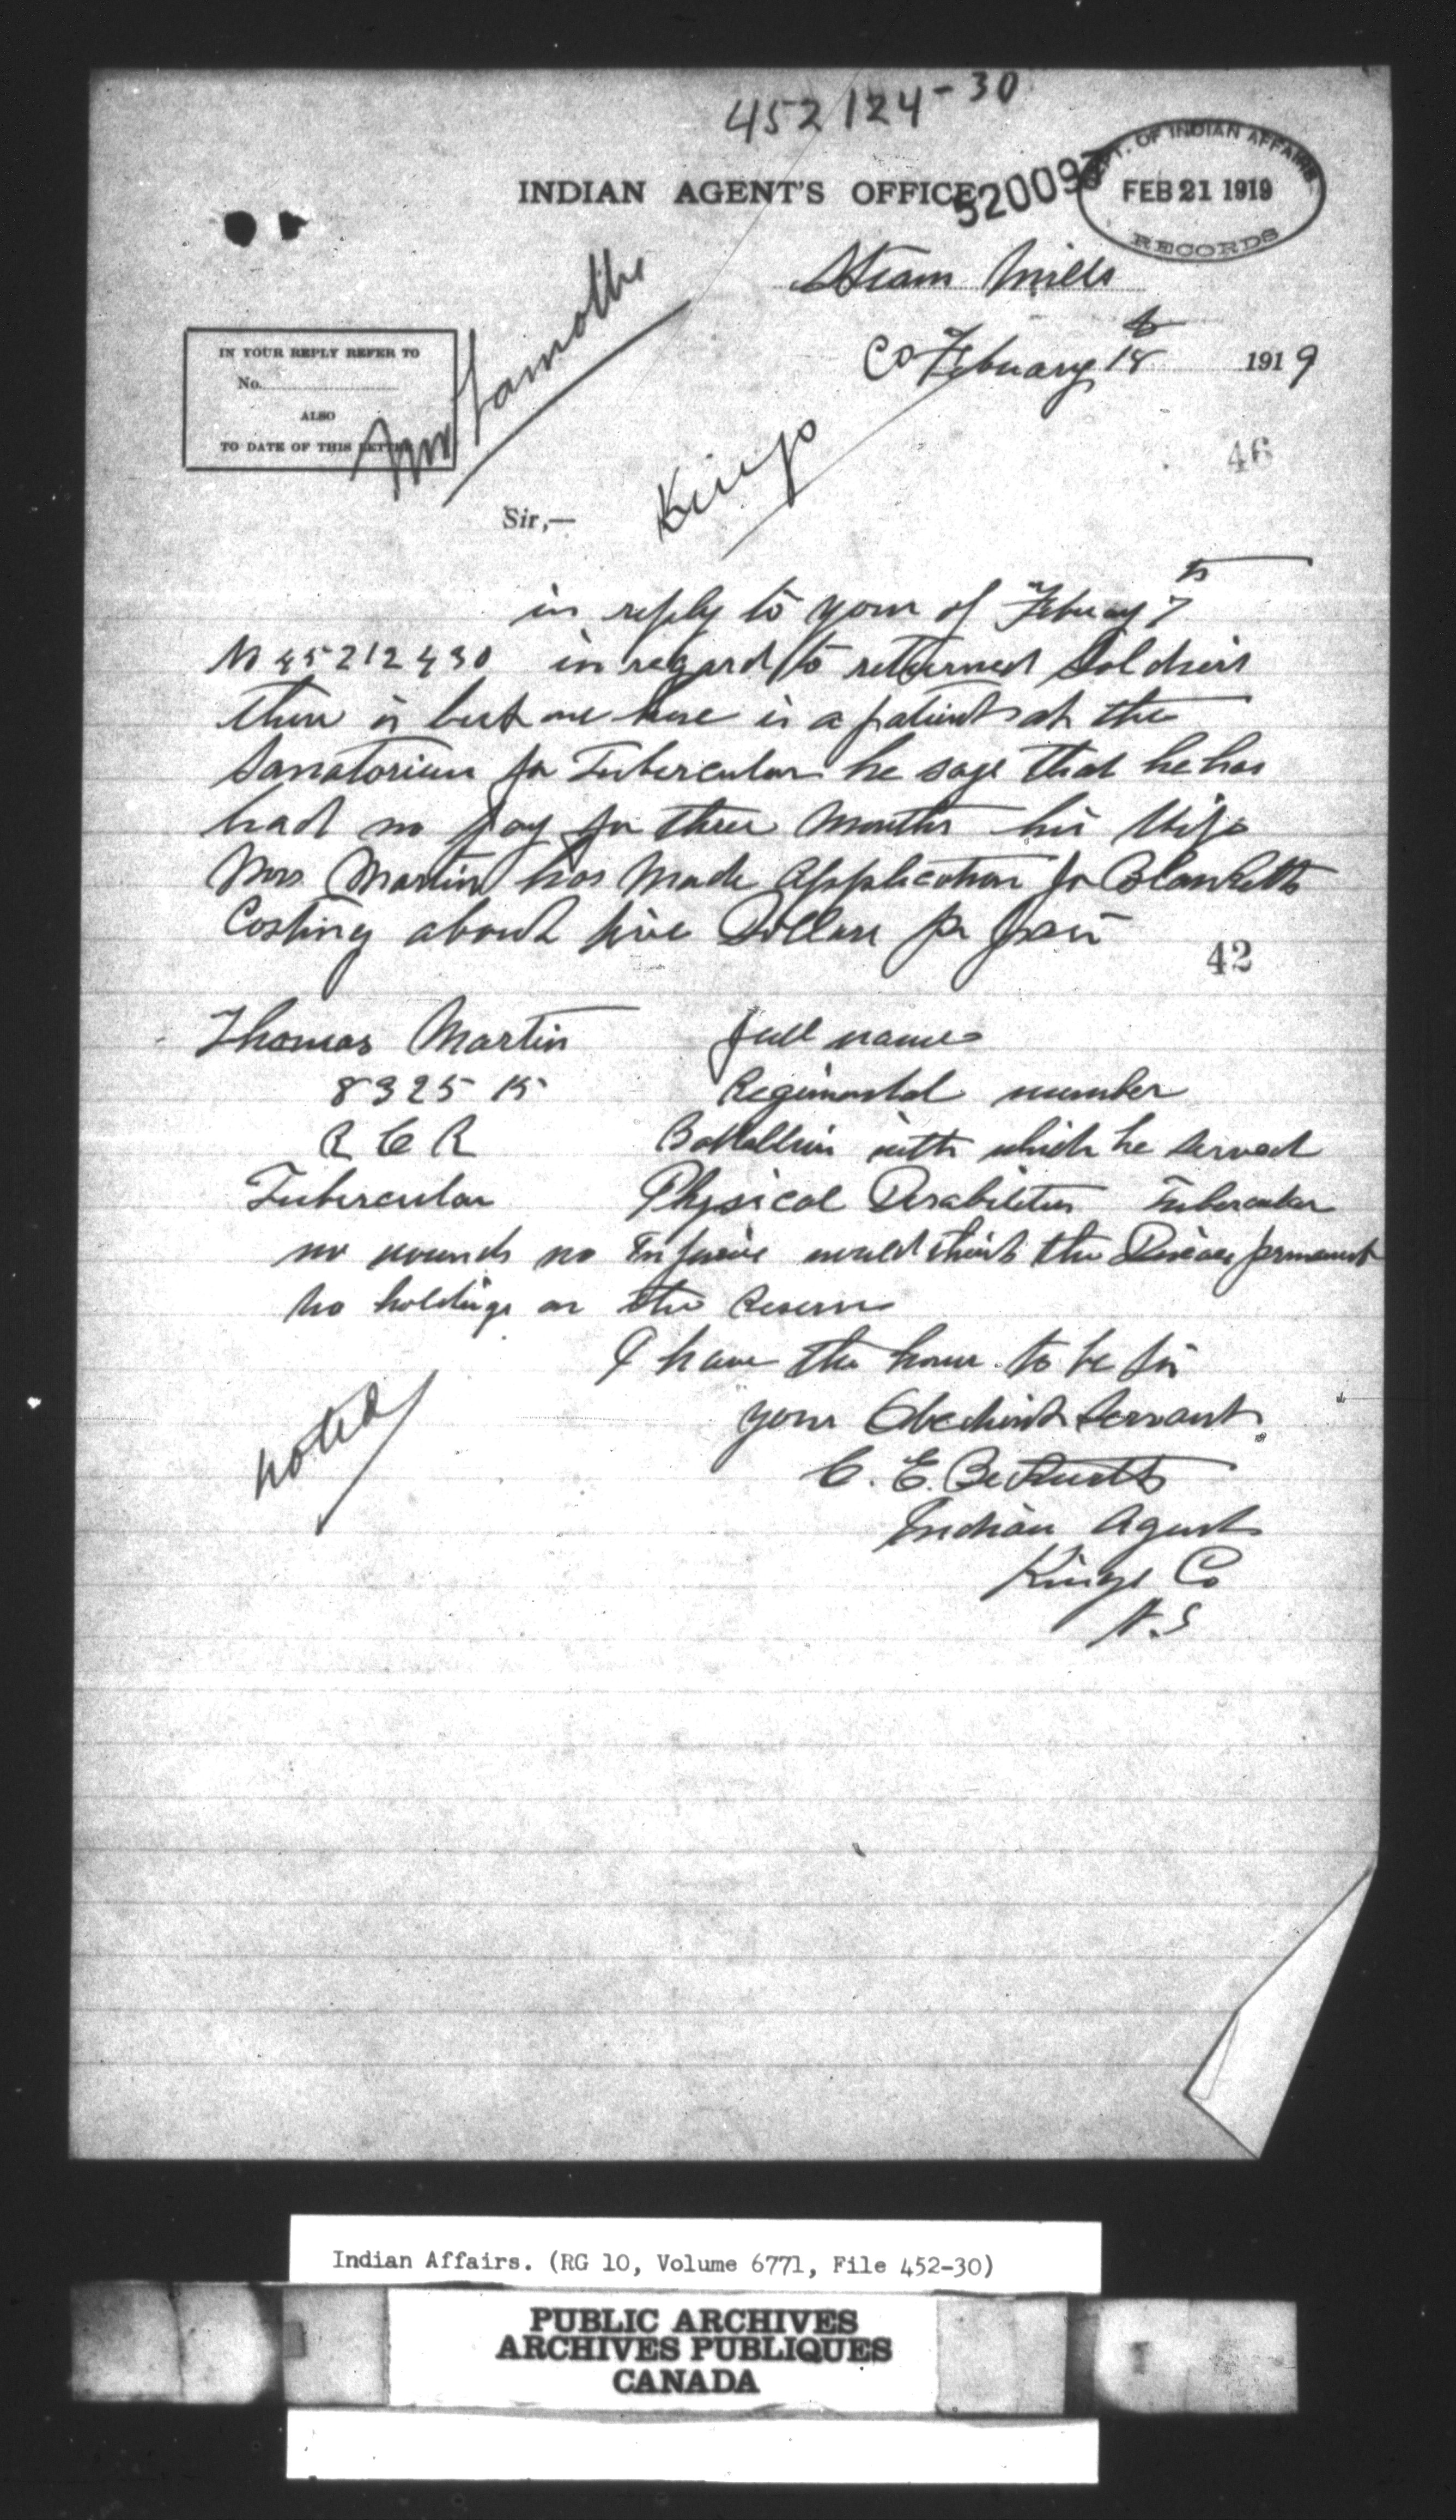 452124-30
INDIAN AGENT'S OFFICE
52009
DEPT. OF INDIAN AFFAIRS
FEB 21 1919
RECORDS
Steam Mills
IN YOUR REPLY REFER TO
No.
ALSO
TO DATE OF THIS LETTER
Mr
Co Febuary 18 1919
46
Kings
Sir,—
in reply to your of Febuary 7th
No 45212430 in regard to returned Soldiers
there is but one here is a patient at the
Sanatorium for Tubercular he says that he has
had no pay for three Months his Wife
Mrs Martin has Made Application for Blanketts
Costing about five Dollars per pair
42
Thomas Martin full name
832515 Regimental number
R C R Battallion with which he served
Tubercular Physical Disabilities Tubercular
no wounds no would think the Disease permanent
no holdings on the Reserve
I have the honor to be Sir
your Obedient Servant
noted
C. E.
Indian Agent
Kings Co
N.S
Indian Affairs. (RG 10, Volume 6771, File 452-30)
PUBLIC ARCHIVES
ARCHIVES PUBLIQUES
CANADA